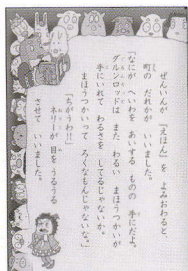 ぜんいんが『えほん』を よみおわると、
町の だれかが いいました。
「なにが へいわを あいする ものの 手にだよ。
ダルンロッドは また わるい まほうつかいが
手にいれて わるさを してるじゃないか。
まほうつかいって ろくなもんじゃないな。」
「ちがうわ!!」
ネリーが 目を うるうる
させて いいました。